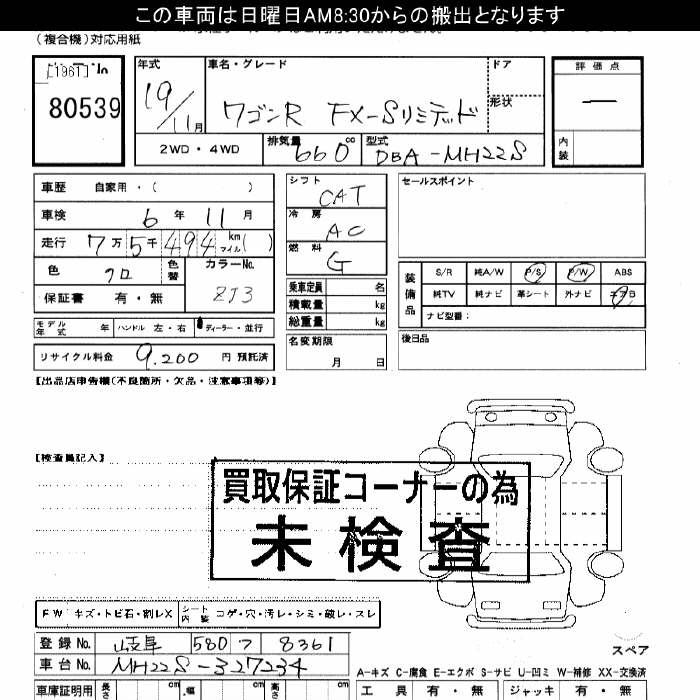 この車両は日曜日AM8:30からの搬出となります
(複合機)対応用紙
80539
年式
19/11月
車名・グレード
ワゴンR FX-Sリミテッド
ドア
形状
評価点
—
内装
2WD・4WD
排気量 660 cc
型式 DBA-MH22S
車歴 自家用・( )
車検 6年11月
走行 7万5千494km マイル( )
色 クロ 色替
カラーNo. ZJ3
保証書 有・無
シフト CAT
冷房 AC
燃料 G
乗車定員 名
積載量 kg
総重量 kg
セールスポイント
装備品
S/R 純A/W P/S P/W ABS
純TV 純ナビ 革シート 外ナビ エアB
ナビ型番:
モデル年式 年 ハンドル 左・右 ディーラー・並行
リサイクル料金 9,200 円 預託済
名変期限 月 日
後日品
【出品店申告欄(不良箇所・欠品・注意事項等)】
【検査員記入】
買取保証コーナーの為
未検査
FW キズ・トビ石・割レX
シート内装 コゲ・穴・汚レ・シミ・破レ・スレ
登録No. 岐阜 580 フ 8361
車台No. MH22S-327234
スペア
A-キズ C-腐食 E-エクボ S-サビ U-凹ミ W-補修 XX-交換済
車庫証明用 長さ cm 幅 cm 高さ cm
工具 有・無 ジャッキ 有・無